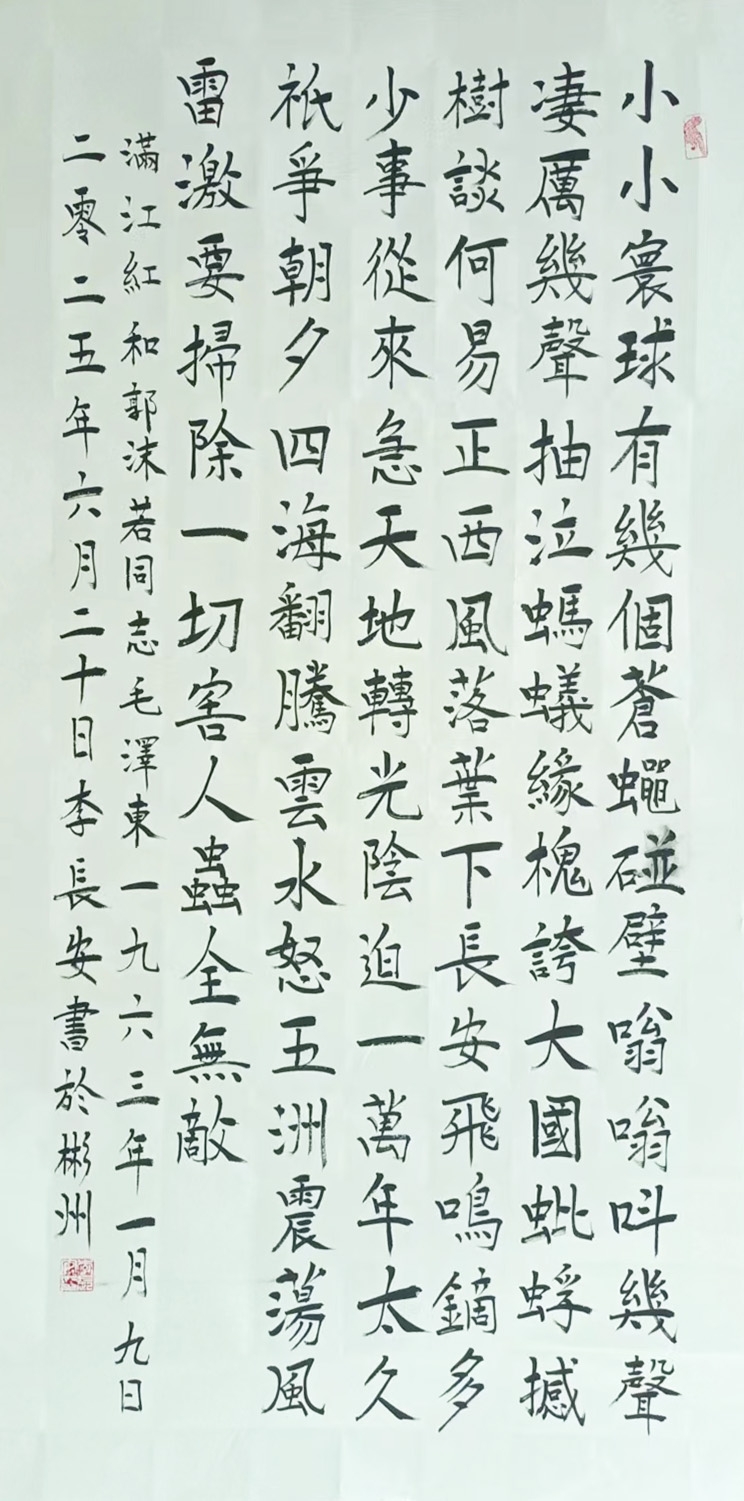 小小寰球有幾個蒼蠅碰壁嗡嗡叫幾聲
凄厲幾聲抽泣螞蟻緣槐誇大國蚍蜉撼
樹談何易正西風落葉下長安飛鳴鏑多
少事從來急天地轉光陰迫一萬年太久
祇爭朝夕四海翻騰雲水怒五洲震蕩風
雷激要掃除一切害人蟲全無敵
滿江紅和郭沫若同志毛澤東一九六三年一月九日
二零二五年六月二十日李長安書於彬州